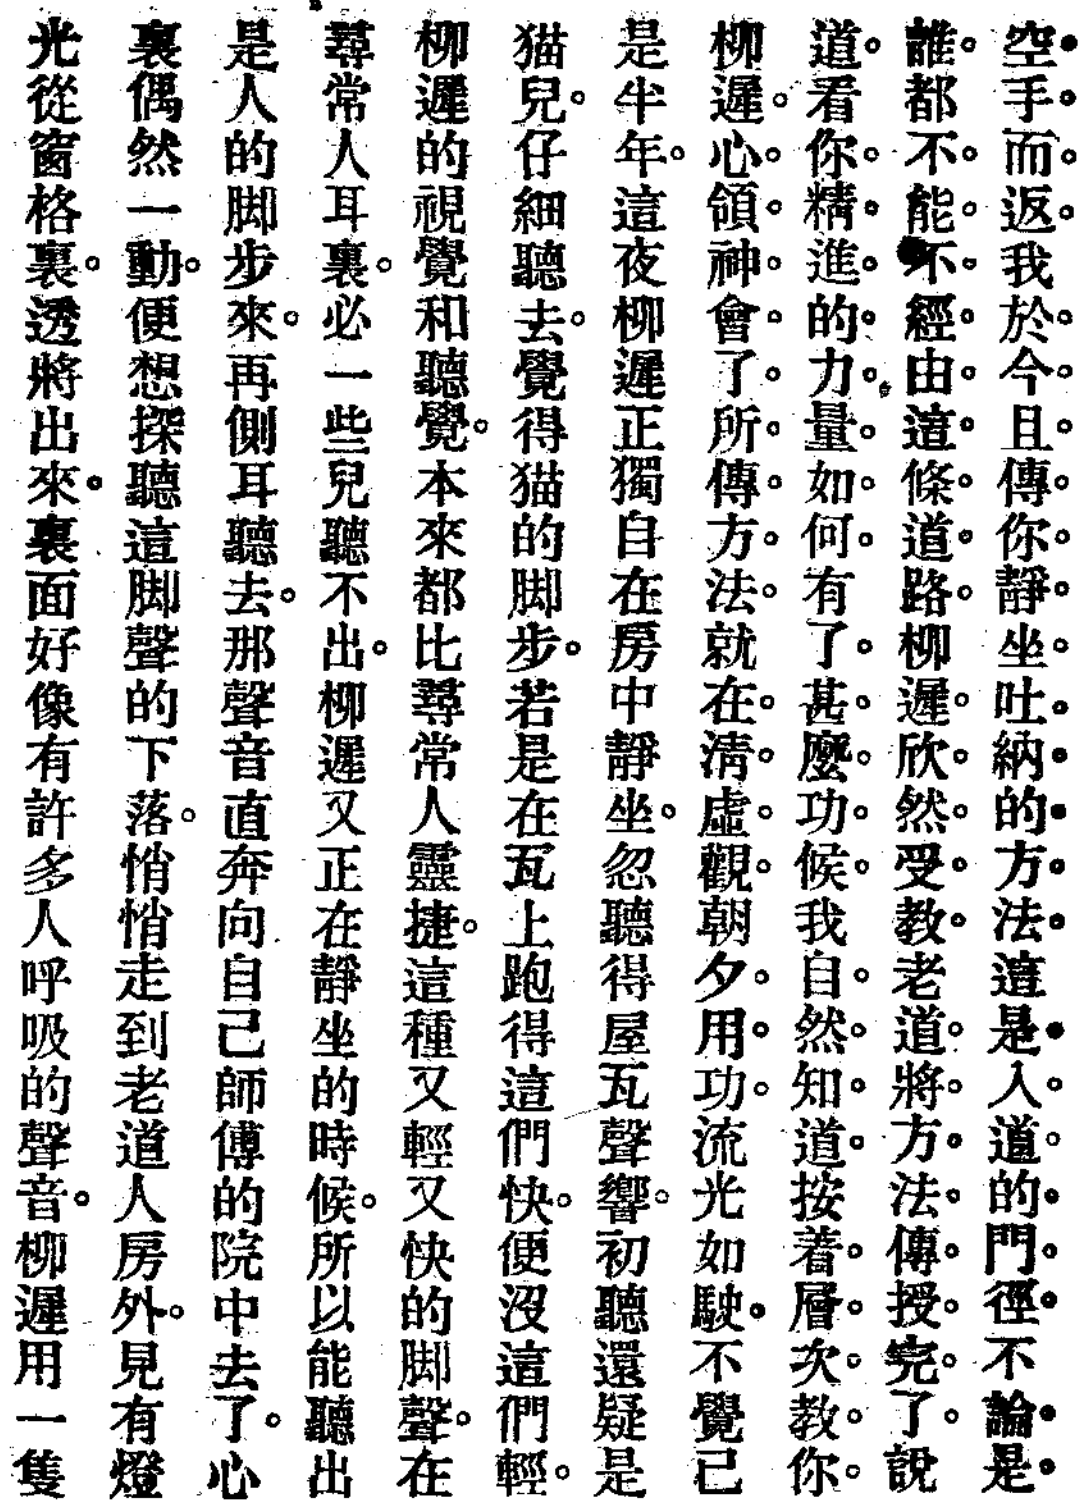 空手而返我於今且傳你靜坐吐納的方法這是入道的門徑不論是
誰都不能不經由這條道路柳遲欣然受教老道將方法傳授完了說
道看你精進的力量如何有了甚麼功候我自然知道按着層次教你
柳遲心領神會了所傳方法就在淸虛觀朝夕用功流光如駛不覺已
是半年。這夜柳遲正獨自在房中靜坐。忽聽得屋瓦聲響。初聽還疑是
猫兒。仔細聽去。覺得猫的脚步。若是在瓦上跑得這們快。便沒這們輕。
柳遲的視覺和聽覺。本來都比尋常人靈捷。這種又輕又快的脚聲。在
尋常人耳裏。必一些兒聽不出。柳遲又正在靜坐的時候。所以能聽出
是人的脚步來。再側耳聽去。那聲音直奔向自己師傅的院中去了。心
裏偶然一動。便想探聽這脚聲的下落。悄悄走到老道人房外。見有燈
光從窗格裏。透將出來。裏面好像有許多人呼吸的聲音。柳遲用一隻